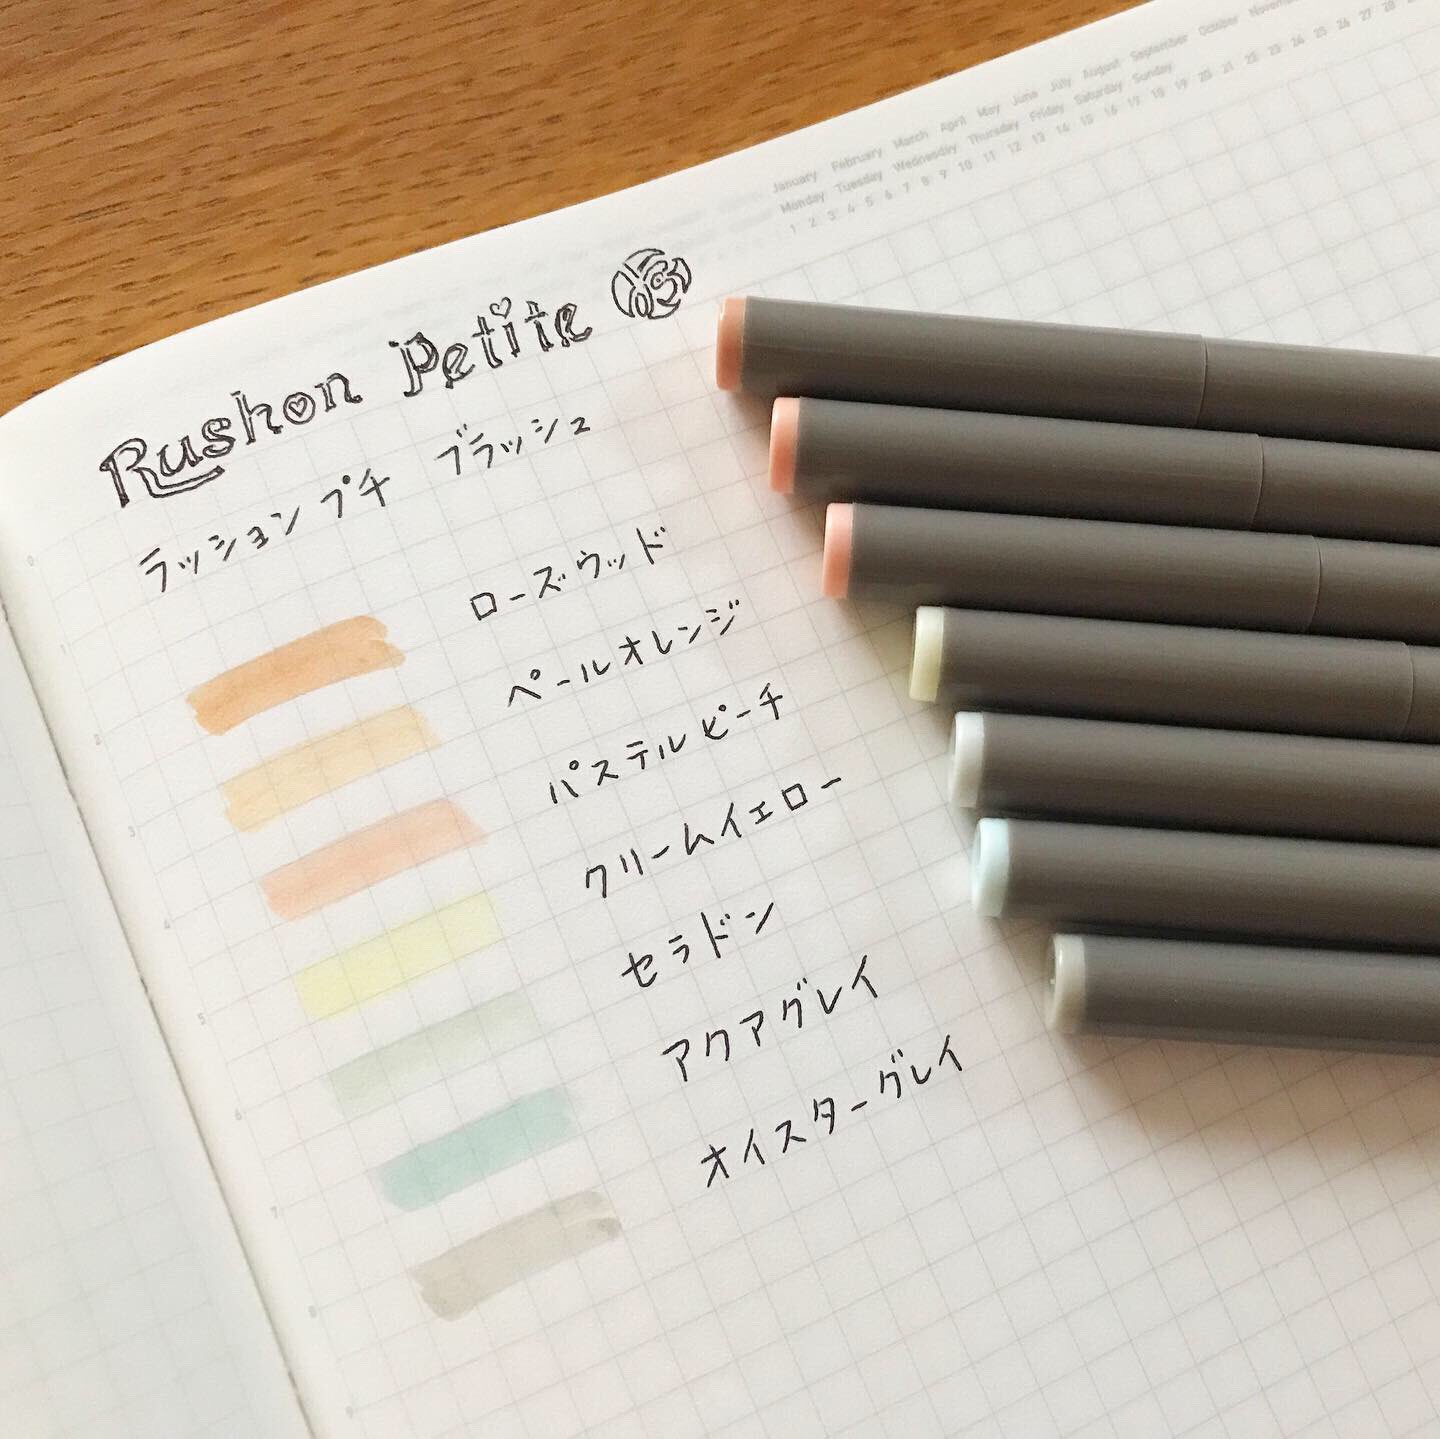 January February March April May June July August September October November
Monday Tuesday Wednesday Thursday Friday Saturday Sunday
1 2 3 4 5 6 7 8 9 10 11 12 13 14 15 16 17 18 19 20 21 22 23 24 25 26 27 28
Rushon Petite
ラッションプチ ブラッシュ
ローズウッド
ペールオレンジ
パステルピーチ
クリームイエロー
セラドン
アクアグレイ
オイスターグレイ
0
1
2
3
4
5
6
7
8
9